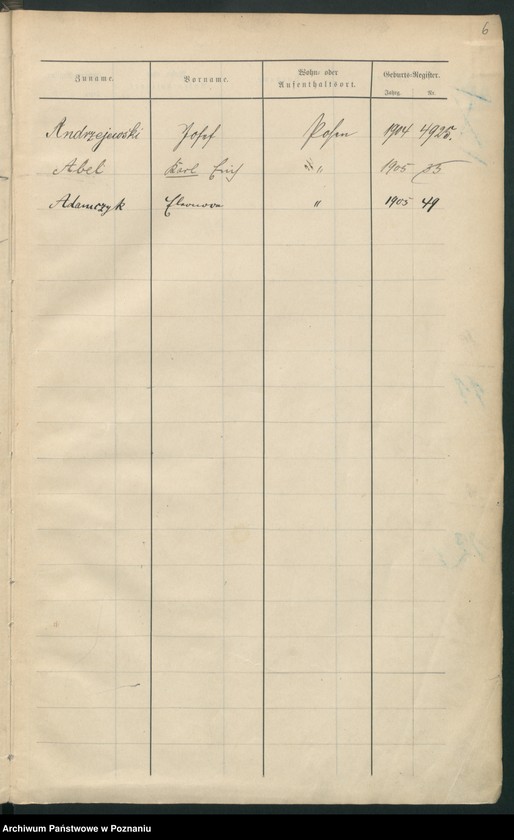 6
Zuname. Vorname. Wohn- oder Aufenthaltsort. Geburts-Register.
Jahrg. Nr.
Andrzejewski Josef Posen 1904 4925.
Abel Karl Erich " 1905 35
Adamczyk Eleonora " 1905 49
Archiwum Państwowe w Poznaniu